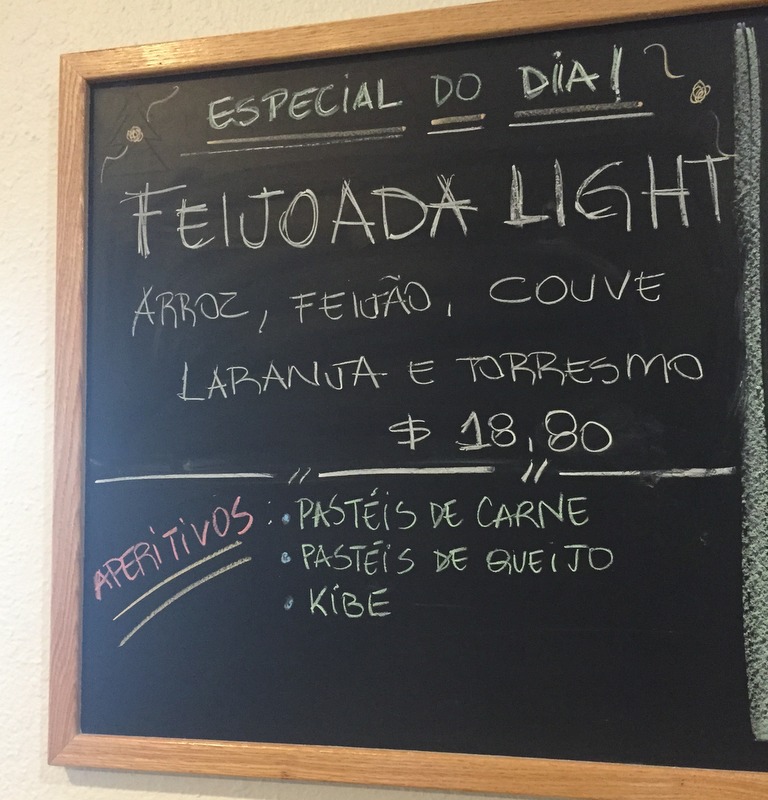 ESPECIAL DO DIA!
FEIJOADA LIGHT
ARROZ, FEIJÃO, COUVE
LARANJA E TORRESMO
$ 18,80
APERITIVOS: • PASTÉIS DE CARNE
• PASTÉIS DE QUEIJO
• KIBE